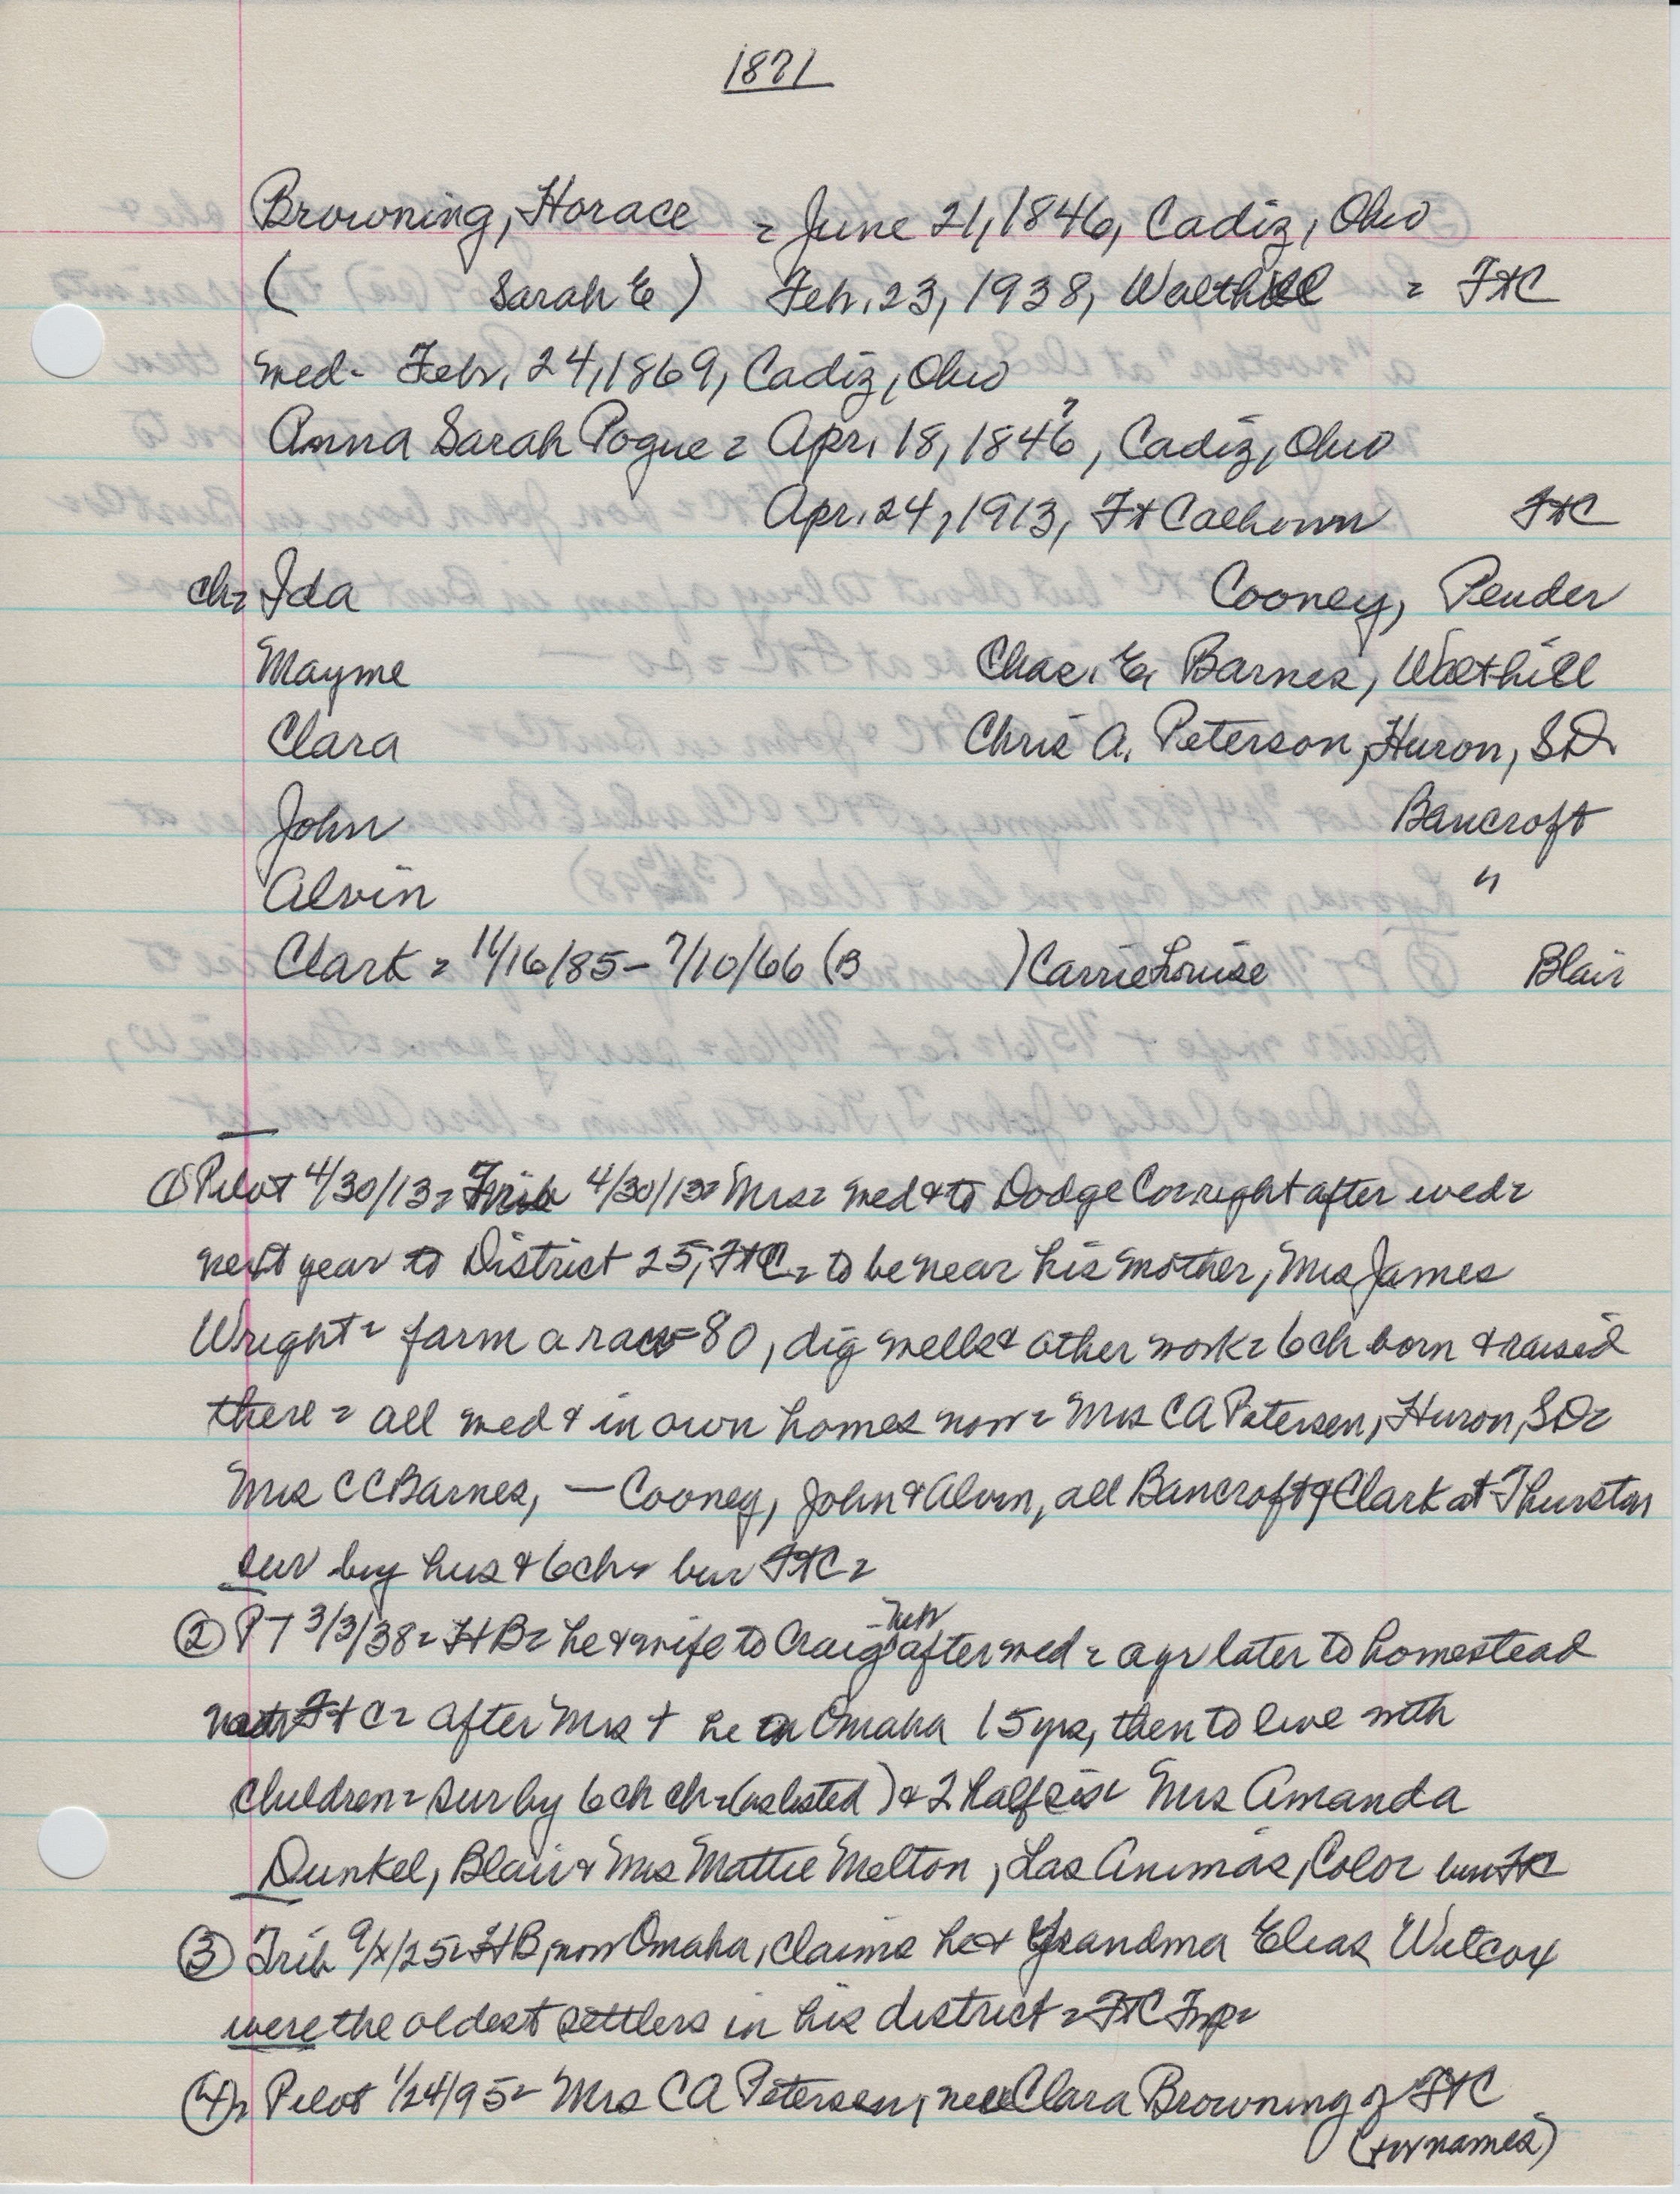 1871
Browning, Horace = June 21, 1846, Cadiz, Ohio
( Sarah E ) Feb. 23, 1938, Walthill = FtC
med - Feb. 24, 1869, Cadiz, Ohio
Anna Sarah Pogue = Apr. 18, 1846?, Cadiz, Ohio
Apr. 24, 1913, Ft Calhoun FtC
ch= Ida Cooney, Pender
Mayme Chas. E. Barnes, Walthill
Clara Chris A. Peterson, Huron, SD.
John Bancroft
Alvin "
Clark = 11/16/85 - 7/10/66 (B ) Carrie Louise Blair
① Pilot 4/30/13 = Trib 4/30/13 = Mrs = med & to Dodge Co right after wed =
next year to District 25, FtC = to be near his mother, Mrs James
Wright = farm a raw = 80, dig wells & other work = 6 ch born & raised
there = all med & in own homes now = Mrs CA Petersen, Huron, SD =
Mrs CC Barnes, — Cooney, John & Alvin, all Bancroft & Clark at Thurston
sur by hus & 6 ch = bur FtC =
② PT 3/3/38 = HB = he & wife to Craig after med = a yr later to homestead
near Ft C = after Mrs + he in Omaha 15 yrs, then to live with
children = sur by 6 ch ch = (as listed) & 2 half sis = Mrs Amanda
Dunkel, Blair & Mrs Mattie Melton, Las Animas, Colo = bur FtC
③ Trib 9/x/25 = HB, now Omaha, claims he & Grandma Elias Wilcox
were the oldest settlers in his district = FtC =
④ = Pilot 1/24/95 = Mrs CA Petersen, nee Clara Browning of FtC
(for names)